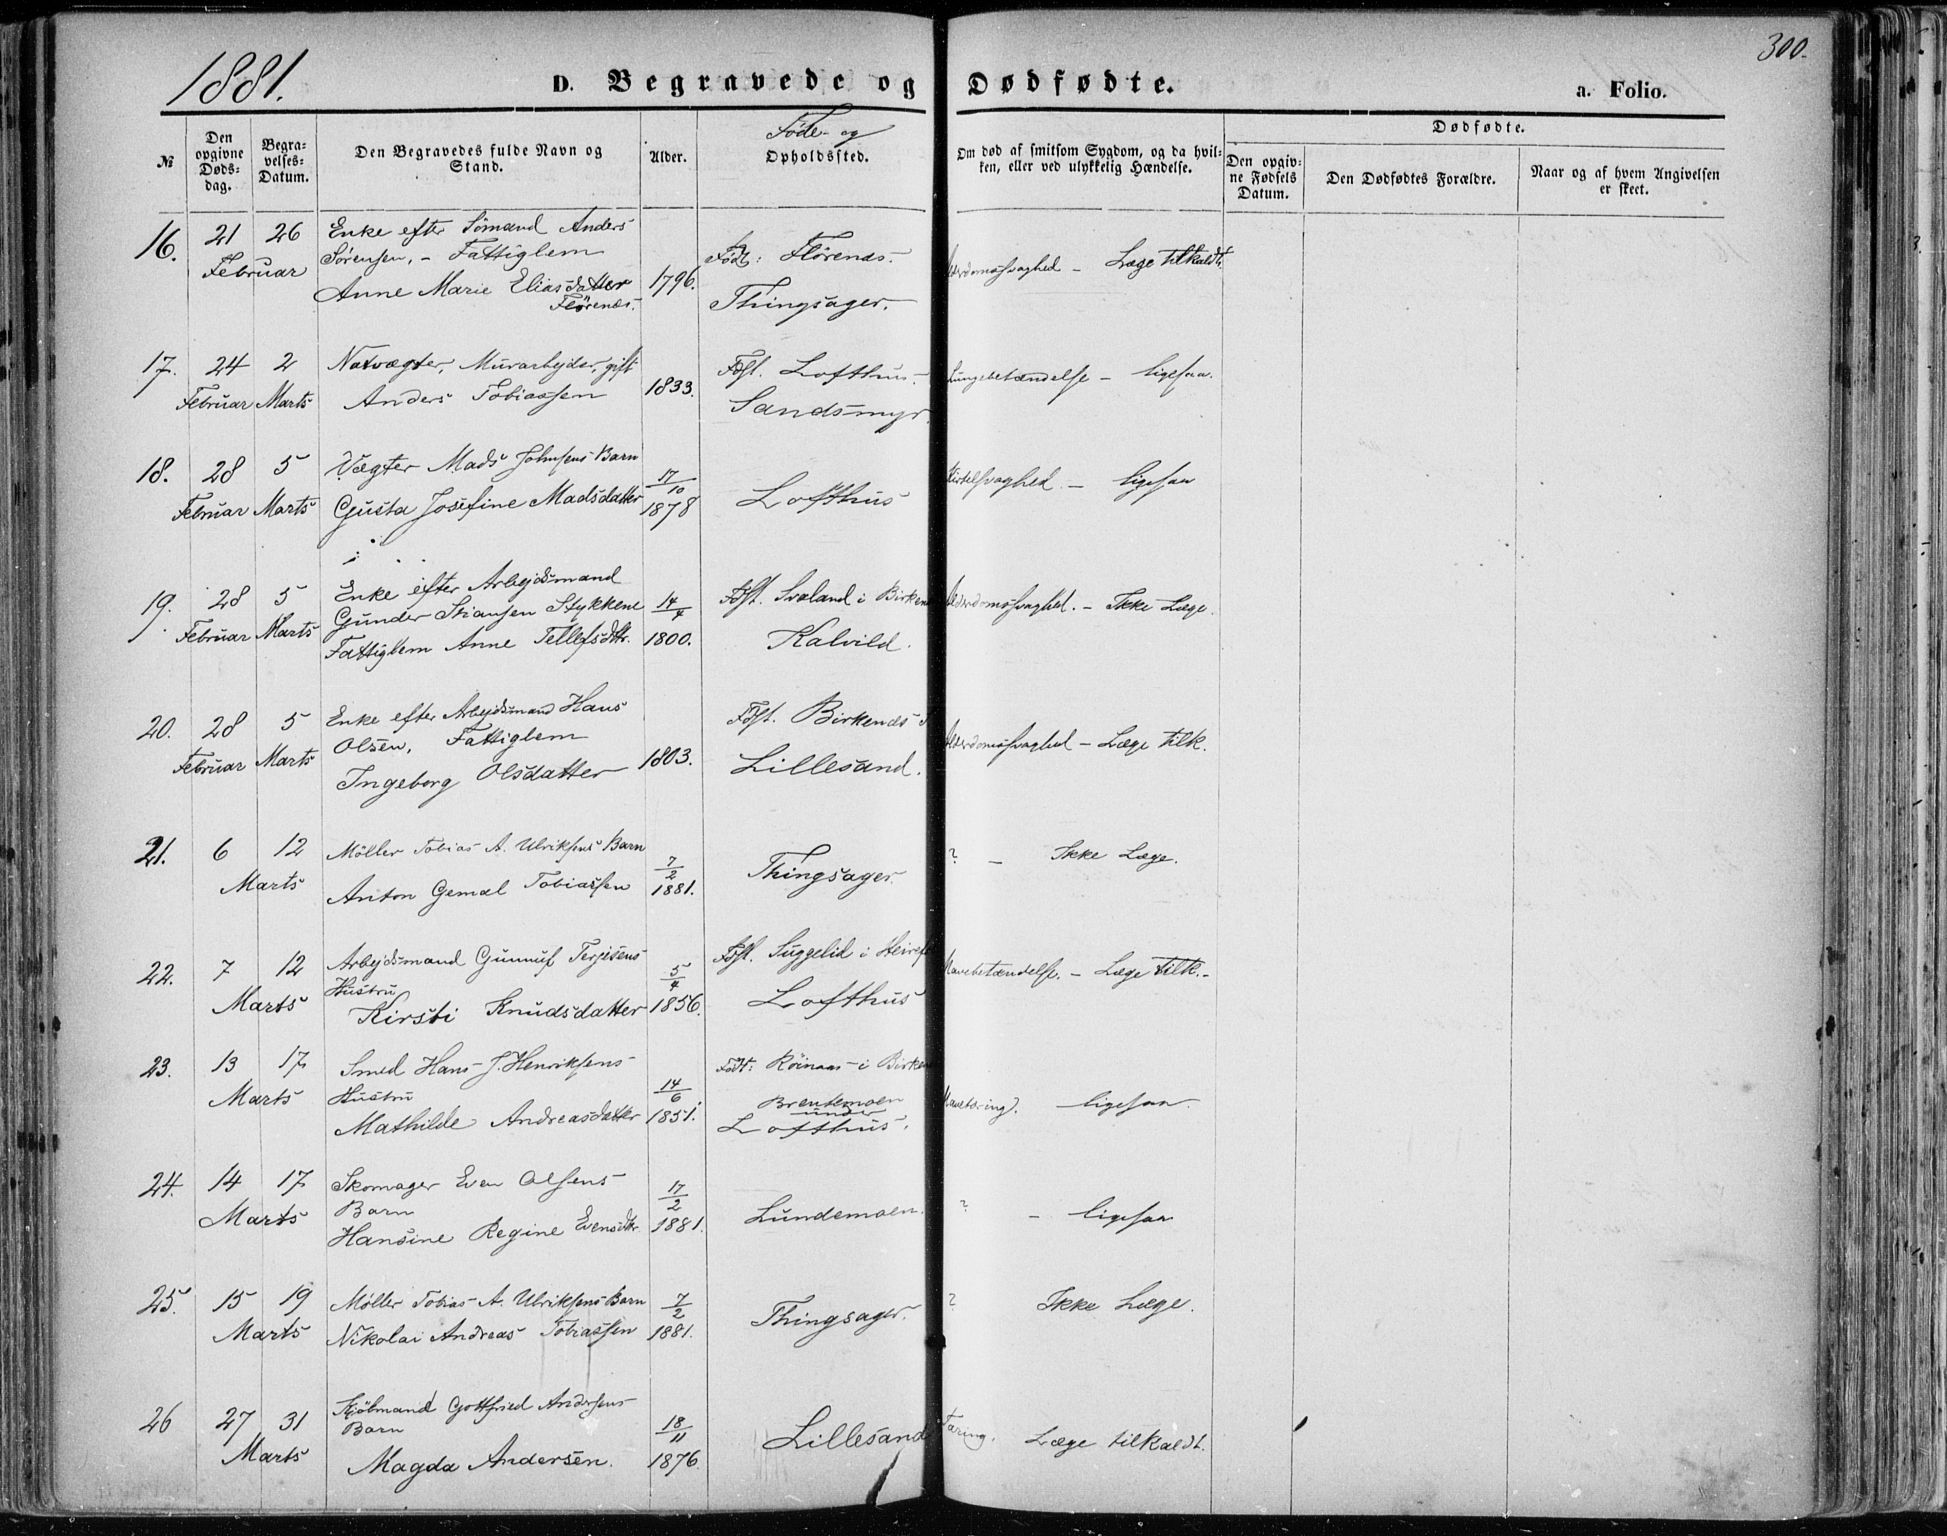 1881.
300.
D. Begravede og Dødfødte.
a. Folio.
№
Den opgivne Døds-dag.
Begra-velses-Datum.
Den Begravedes fulde Navn og Stand.
Alder.
Føde- og
Opholdssted.
Om død af smitsom Sygdom, og da hvil-
ken, eller ved ulykkelig Hændelse.
Dødfødte.
Den opgiv-ne Fødsels Datum.
Den Dødfødtes Forældre.
Naar og af hvem Angivelsen
er skeet.
16. 21 26 Enke efter Sømand Anders
Februar Sørensen, - Fattiglem
Anne Marie Eliasdatter 1796.
Flörenæs.
Født: Flörenæs.
Thingsager.
Alderdomssvaghed - Læge tilkaldt.
17. 24 2 Natvægter, Murarbejder, gift
Februar Marts Anders Tobiassen 1833.
Fdst. Lofthus.
Sandsmyr.
Lungebetændelse - ligesaa.
18. 28 5 Vægter Mads Johnsens Barn 17/10
Februar Marts Gusta Josefine Madsdatter 1878
Lofthus
Kirtelsvaghed - ligesaa
19. 28 5 Enke efter Arbejdsmand
Gunder Stiansen Stykkene 14/4
Februar Marts Fattiglem Anne Tellefsdtr. 1800.
Fdst. Svaland i Birkenæs
Kalvild.
Alderdomssvaghed. - Ikke Læge.
20. 28 5 Enke efter Arbejdsmand Hans
Olsen, Fattiglem
Februar Marts Ingeborg Olsdatter 1803.
Fdst. Birkenæs
Lillesand.
Alderdomssvaghed - Læge tilk.
21. 6 12 Møller Tobias A. Ulriksens Barn 7/2
Marts Anton Gemal Tobiassen 1881.
Thingsager.
? - Ikke Læge.
22. 7 12 Arbejdsmand Gunnuf Terjesens 5/4
Hustru
Marts Kirsti Knudsdatter 1856.
Fdst. Suggelid i
Lofthus
Mavebetændelse. - Læge tilk. -
23. 13 17 Smed Hans J. Henriksens 14/6
Marts Hustru
Mathilde Andreasdatter 1851.
Født: Röinaas i Birkenæs
Brentemoen
under
Lofthus.
Mavetæring). ligesaa.
24. 14 17 Skomager Even Olsens 17/2
Marts Barn
Hansine Regine Evensdtr. 1881.
Lundemoen.
? - ligesaa
25. 15 19 Møller Tobias A. Ulriksens Barn 7/2
Marts Nikolai Andreas Tobiassen 1881.
Thingsager.
? Ikke Læge.
26 27 31 Kjøbmand Gottfried Andersens
Barn 18/11
Marts Magda Andersen. 1876.
Lillesand
Tæring. Læge tilkaldt.